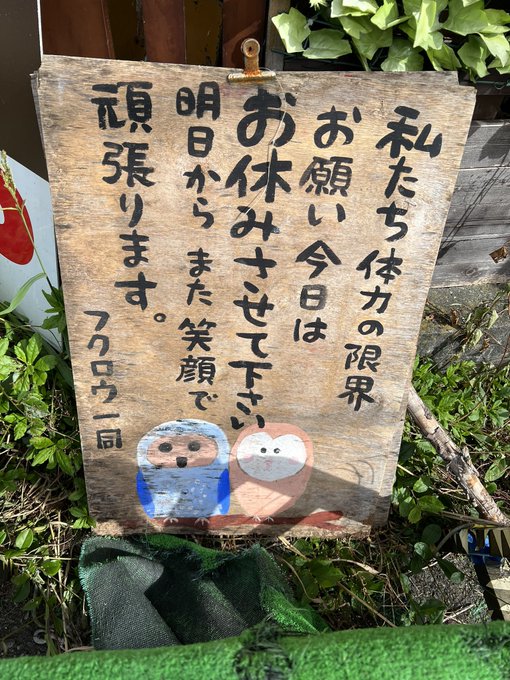 私たち体力の限界
お願い今日は
お休みさせて下さい
明日から また笑顔で
頑張ります。
フクロウ一同